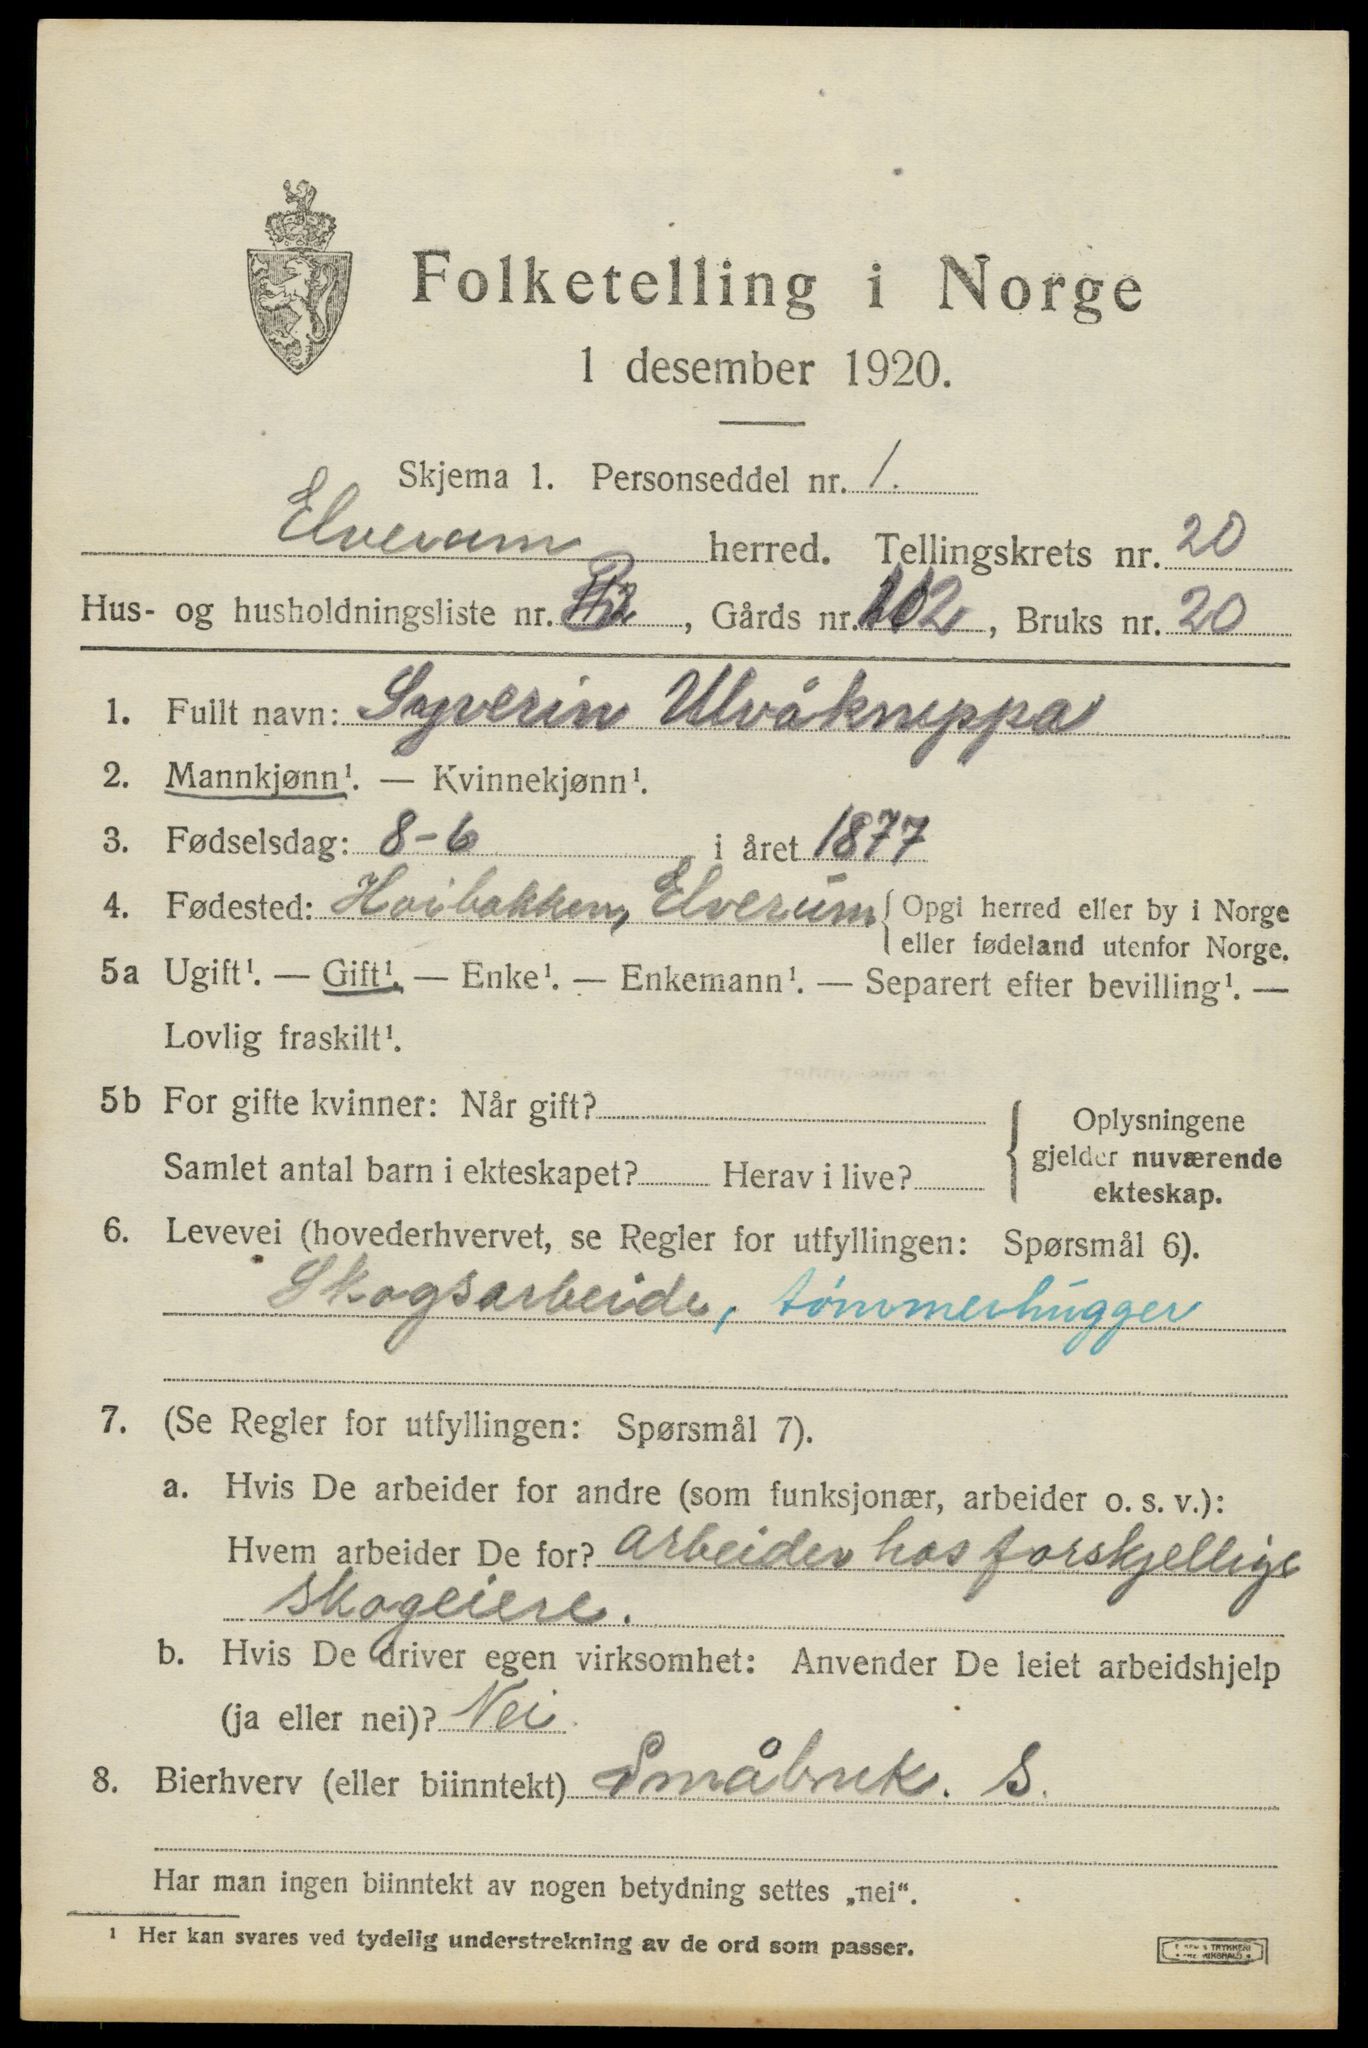 Folketelling i Norge
1 desember 1920.
Skjema 1. Personseddel nr. 1.
Elverum herred. Tellingskrets nr. 20
Hus- og husholdningsliste nr. , Gårds nr. 112, Bruks nr. 20
1. Fullt navn: Syverin Ulvåkneppa
2. Mannkjønn¹. — Kvinnekjønn¹.
3. Fødselsdag: 8-6 i året 1877
4. Fødested: Hoibakken, Elverum { Opgi herred eller by i Norge
eller fødeland utenfor Norge.
5a Ugift¹. — Gift¹. — Enke¹. — Enkemann¹. — Separert efter bevilling¹. —
Lovlig fraskilt¹.
5b For gifte kvinner: Når gift?
Samlet antal barn i ekteskapet? Herav i live?
Oplysningene
gjelder nuværende
ekteskap.
6. Levevei (hovederhvervet, se Regler for utfyllingen: Spørsmål 6).
Skogsarbeide, tømmerhugger
7. (Se Regler for utfyllingen: Spørsmål 7).
a. Hvis De arbeider for andre (som funksjonær, arbeider o. s. v.):
Hvem arbeider De for? arbeider hos forskjellige
skogeiere.
b. Hvis De driver egen virksomhet: Anvender De leiet arbeidshjelp
(ja eller nei)? Nei
8. Bierhverv (eller biinntekt) Småbruk. S.
Har man ingen biinntekt av nogen betydning settes „nei“.
¹ Her kan svares ved tydelig understrekning av de ord som passer.